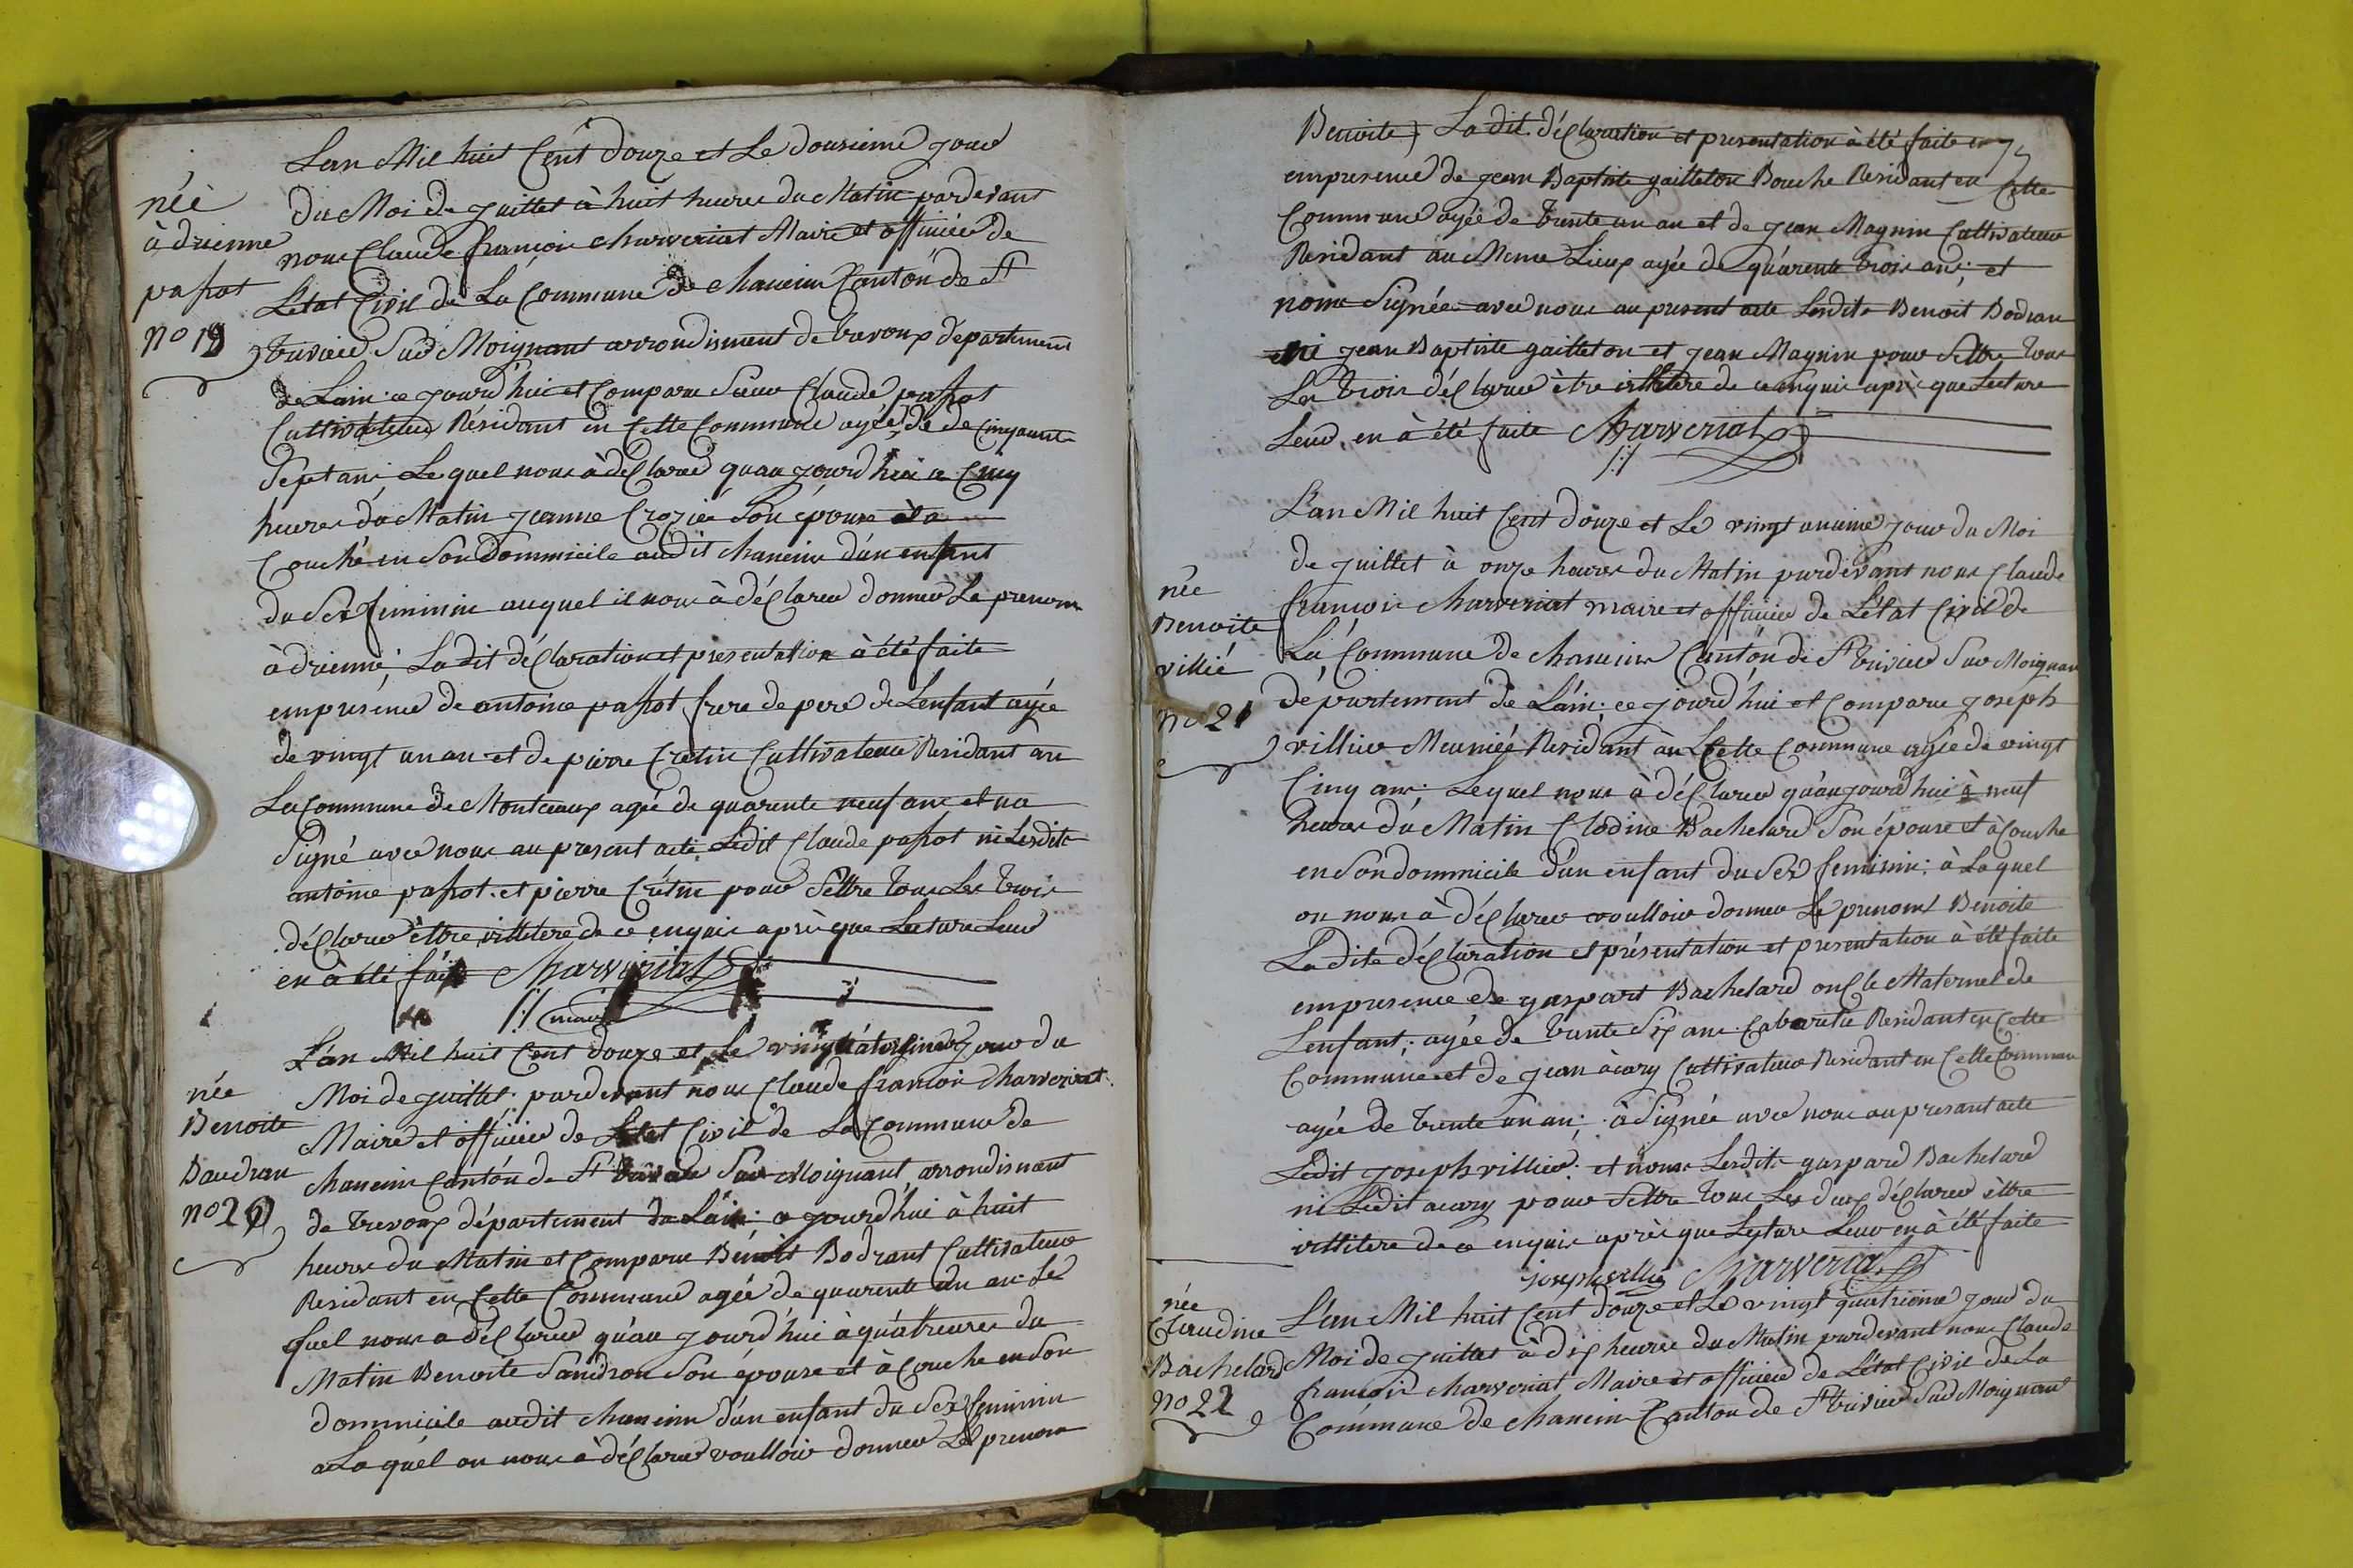 née
à drienne
passot
no 19
Lan Mil huit Cent douze et Le dousieme jour
du Moi de juillet à huit heures du Matin pardevant
nous Claude françois charveriat Maire et officiée de
Létat Civil de La Commune de chaneins Canton de St
trivier Sur Moignant arrondisment de trevoux departement
de Lain: ce jourd'hui et Comparu Sieur Claude passot
Cultivateur Résidant en Cette Commune agée de de Cinquante
Sept ans; Le quel nous à déClarer quau jourd'hui a Cinq
heures du Matin jeanne Crozier Son épouse et a
Couché en Son dommicile audit chaneins d'un enfant
du Sex feminin auquel il nous à déClarer donner Le prenom
à drienne; Ladit déClaration et presentation à été faite
empresence de antoine passot frere de pere de Lenfant agée
de vingt un an et de pierre Cretin Cultivateur Residant an
La Commune de Montceaux agée de quarente neuf ans et na
Signé avec nous au present acte Ledit Claude passot ni Lesdits
antoine passot et pierre Crétin pour Settre tous Les trois
déClarer être illitere de ce enquis après que Lecture Leur
en à été faite Charveriat
maire
née
Benoite
Baudran
no 20
L'an Mil huit Cent douze et le jour du
Moi de juillet pardevant nous Claude françois Charveriat
Maire et officier de Létat Civil de La Commune de
chaneins Canton de St trivier Sur Moignant, arrondismant
de trevoux département de Lain: ce jourd'hui à huit
heures du Matin et Comparu Benoit Bodrant Cultivateur
Residant en Cette Commune agée de quarente un an: Le
quel nous a déClarer qu'au jourd'hui à quátreures du
Matin Benoite Sandron Son épouse et à Couche en Son
dommicile audit chaneins d'un enfant du Sex feminin
a Laquél on nous à déClarer voulloir donner Le prenom
Benoite; Ladit déClaration et presentation à été faite en
empresence de jean Baptiste gailleton Bouche Residant en Cette
Commune agée de trente un an et de jean Magnin Cultivateur
Residant au Meme Lieux agée de quárente trois ans; et
nonx Signée avec nous au present acte Lesdits Benoit Bodran
ni jean Baptiste gailleton et jean Magnin pour Settre tous
Les trois déClarer être illitere de ce enquis après que Lecture
Leur en à été faite Charveriat
née
Benoite
villié
no 21
L'an Mil huit Cent douze et Le vingt unieme jour du Moi
de juillet à onze heures du Matin pardevant nous Claude
françois charveriat maire et officier de Létat Civil de
La Commune de chaneins Canton de St trivier Sur Moignan
département de Láin: ce jourd'hui et Comparu joseph
villier Meuniée Residant an Cette Commune agée de vingt
Cinq ans: Lequel nous à déClarer qu'au jourd'hui à neuf
heures du Matin Clodine Bachelard Son épouse et à Couche
en Son dommicile d'un enfant du Sex feminin: à Laquel
on nous à déClarer voulloir donner Le prenom Benoite
Ladite déClaration et présentation et presentation à été faite
empresence de gaspart Bachelard oncle Maternel de
Lenfant; agée de trente Six ans Cabaretie Residant en Cette
Commune et de jean acary Cultivateur Residant en Cette Commune
agée de trente un an; à Signée avec nous au presant acte
Ledit joseph villier: et nonx Lesdits gaspard Bachelard
ni Ledit acary pour Settre tous Les deux déClarer être
illitere de ce enquis après que Lecture Leur en à été faite
joseph villie Charveriat
née
Claudine
Bachelard
no 22
L'an Mil huit Cent douze et Le vingt quatrieme jour du
Moi de juillet à dix heures du Matin pardevant nous Claude
françois charveriat Maire et officier de Létat Civil de La
Commune de chaneins Canton de St trivier Sur Moignant